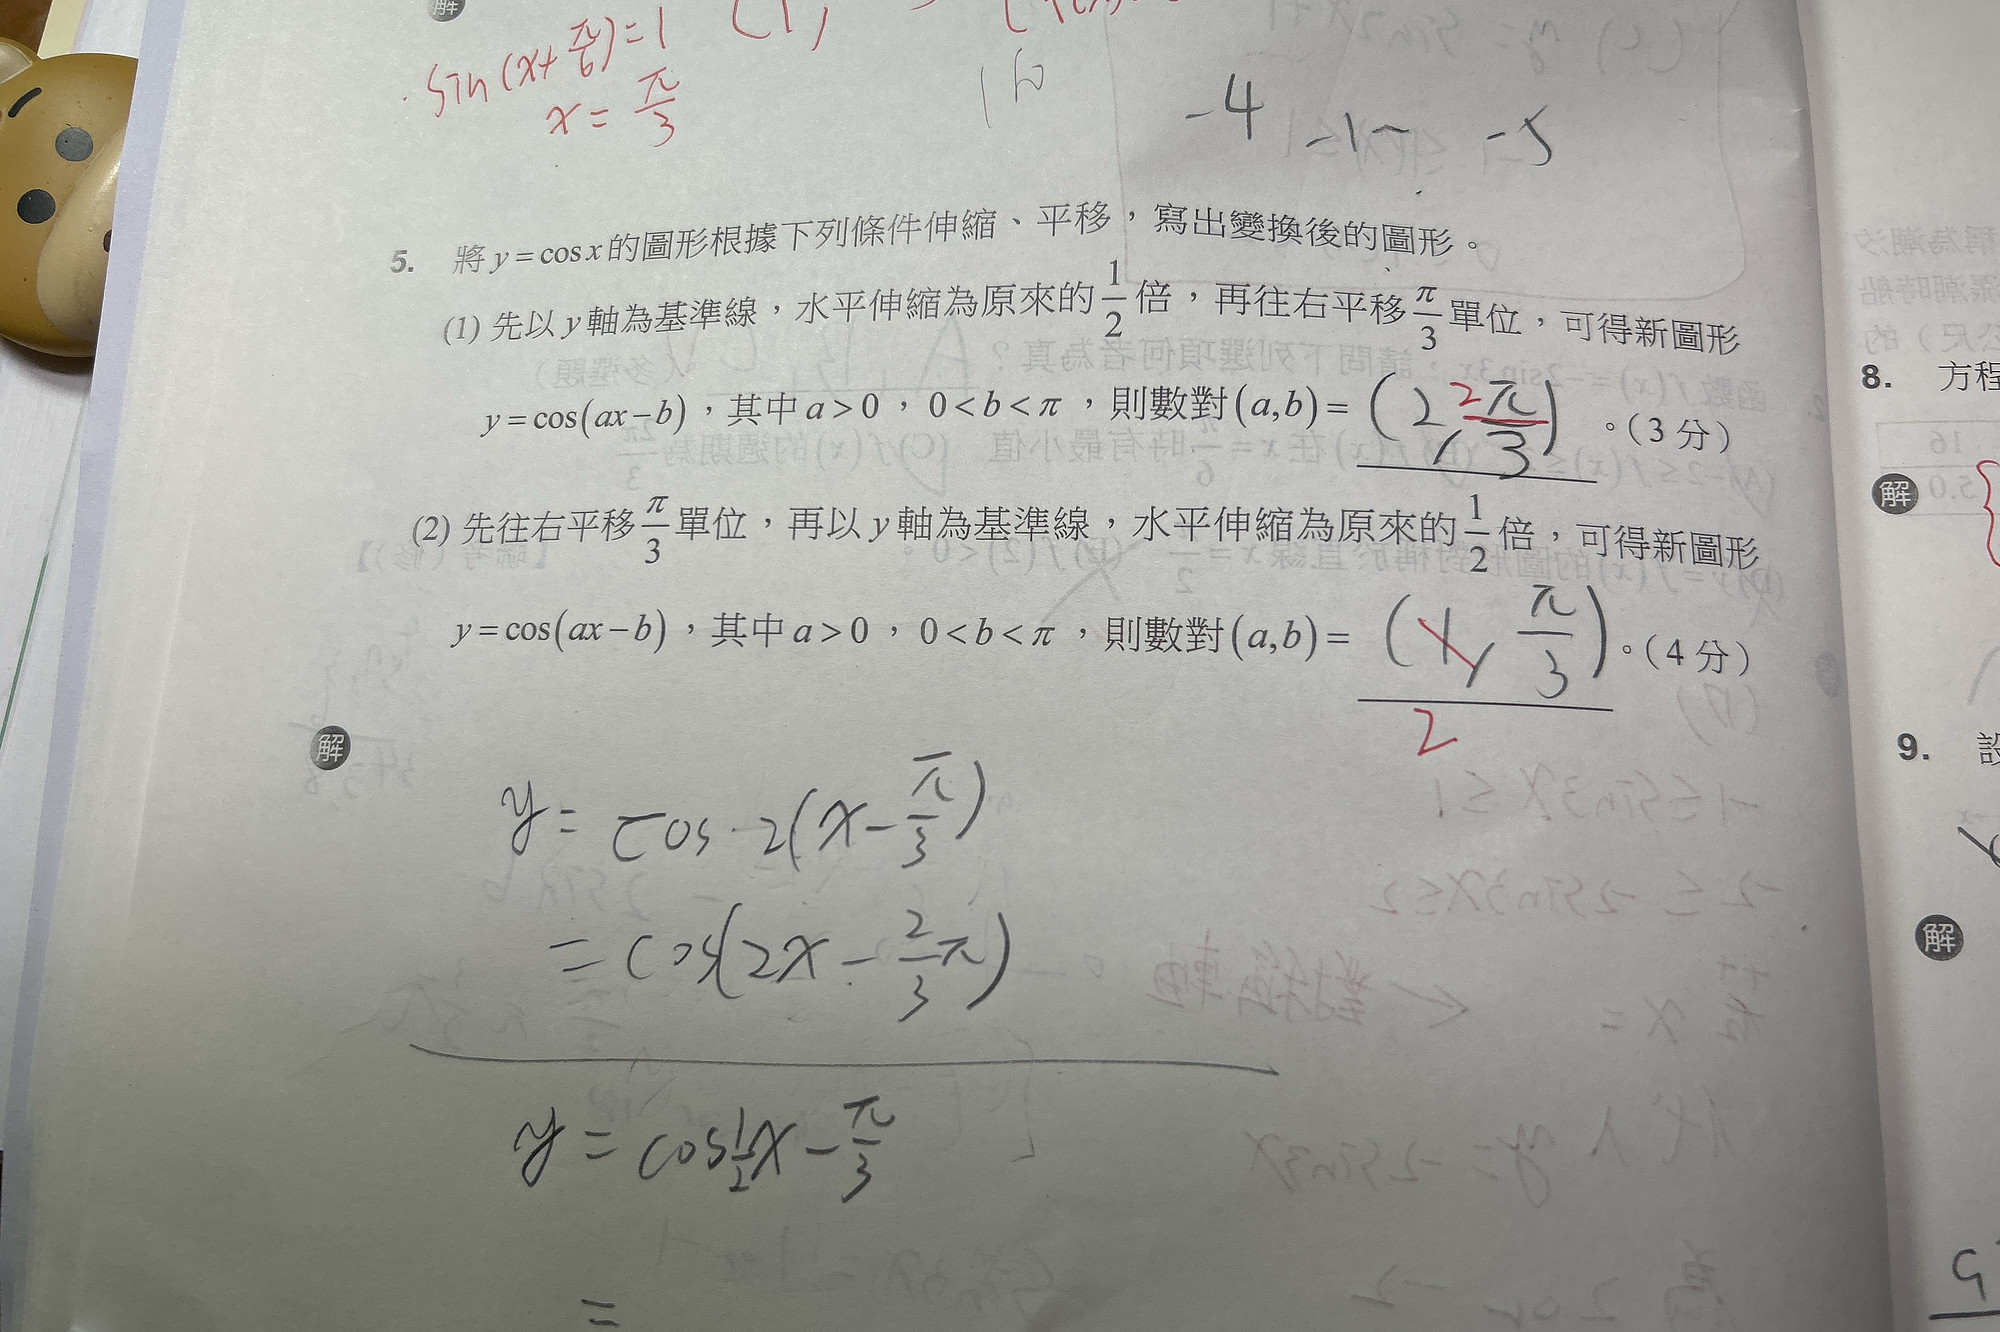 解
sin(x+π/6)=1
x=π/3
-4 -1- -5
5. 將y=cosx的圖形根據下列條件伸縮、平移，寫出變換後的圖形。
(1) 先以y軸為基準線，水平伸縮為原來的1/2倍，再往右平移π/3單位，可得新圖形
y=cos(ax-b)，其中a>0，0<b<π，則數對(a,b)=(2, 2π/3)。(3分)
(2) 先往右平移π/3單位，再以y軸為基準線，水平伸縮為原來的1/2倍，可得新圖形
y=cos(ax-b)，其中a>0，0<b<π，則數對(a,b)=(1, π/3)。(4分)
2
解
y=cos 2(x-π/3)
=cos(2x-2/3π)
y=cos1/2x-π/3
=
8. 方程
解
9. 設
解
5